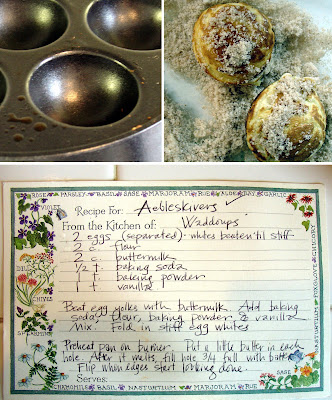 ROSE PARSLEY BASIL SAGE MARJORAM RUE ALOE BAY GARLIC
VIOLET
Recipe For: Aebleskivers
From the Kitchen of: Waddoups
2 eggs (separated) - whites beaten til stiff
2 c. flour
2 c. buttermilk
1/2 t. baking soda
1 t. baking powder
1 t. vanilla
DILL
CHIVES
CHICORY
FOXGLOVE
NASTURTIUM
Beat egg yolks with buttermilk. Add baking
soda, flour, baking powder, & vanilla
Mix. Fold in stiff egg whites
Preheat pan on burner. Put a little butter in each
hole. After it melts, fill hole 3/4 full with batter
Flip when edges start looking done.
Serves:
SAGE
CHAMOMILE BASIL NASTURTIUM MARJORAM RUE